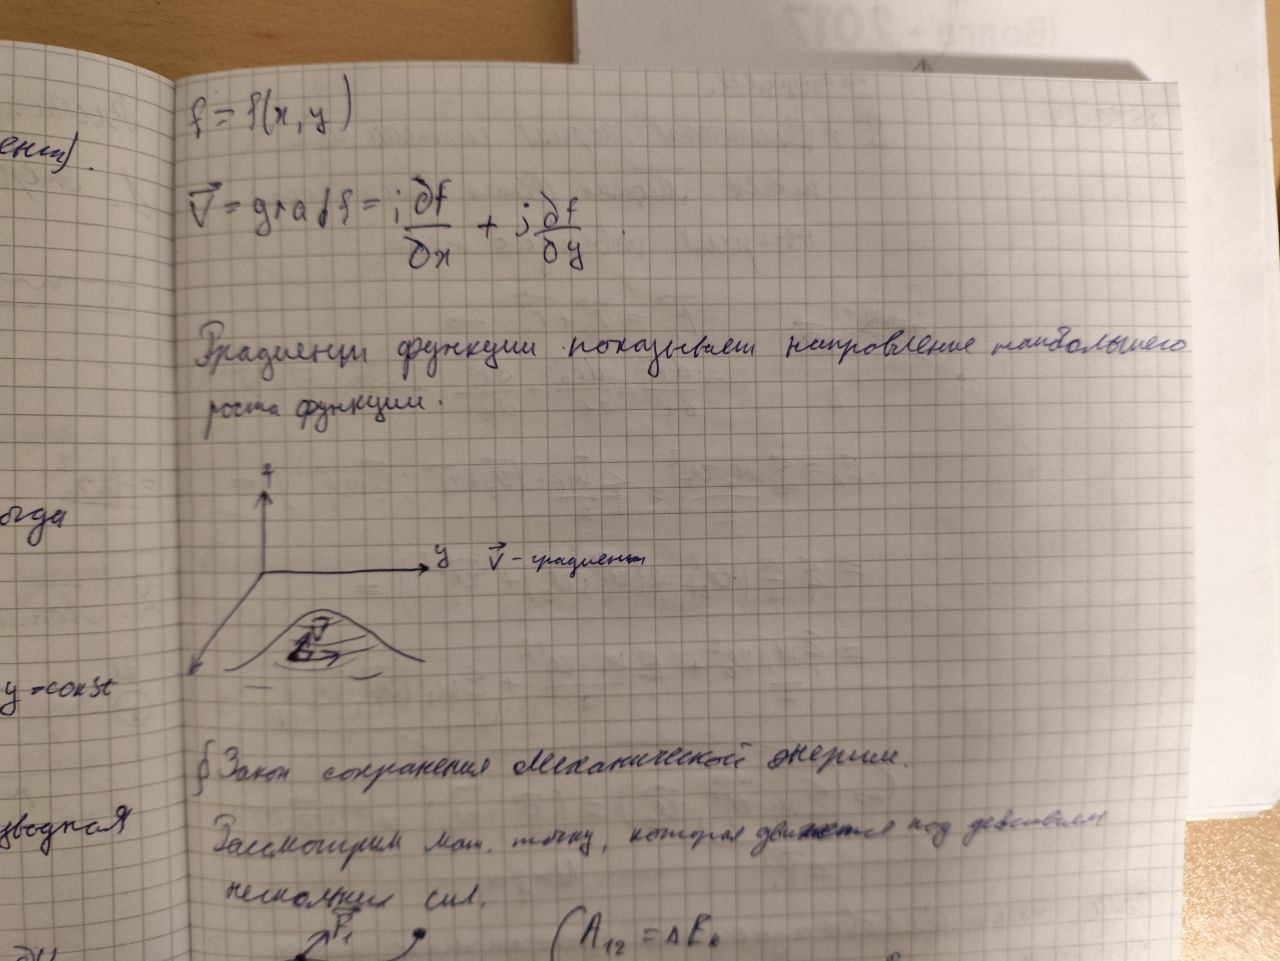 iВолга - 2017
ент).
f = f(x, y)
V⃗ = grad f = i ∂f/∂x + j ∂f/∂y
Градиент функции показывает направление наибольшего
роста функции.
f
огда
y
V⃗ - градиент
V⃗
y = const
§ Закон сохранения механической энергии.
зводная
Рассмотрим мат. точку, которая движется под действием
нескольких сил.
F⃗₁
A₁₂ = ΔEₖ